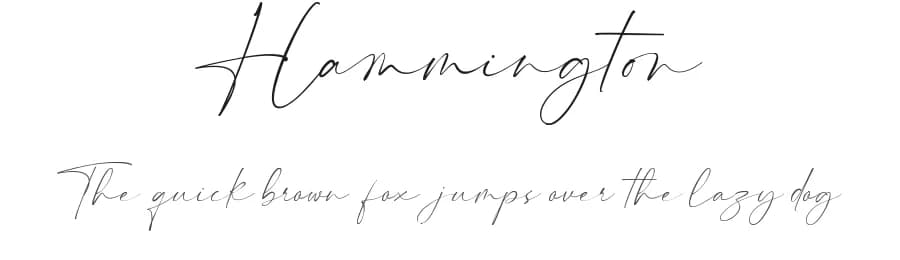 Hammington
The quick brown fox jumps over the lazy dog